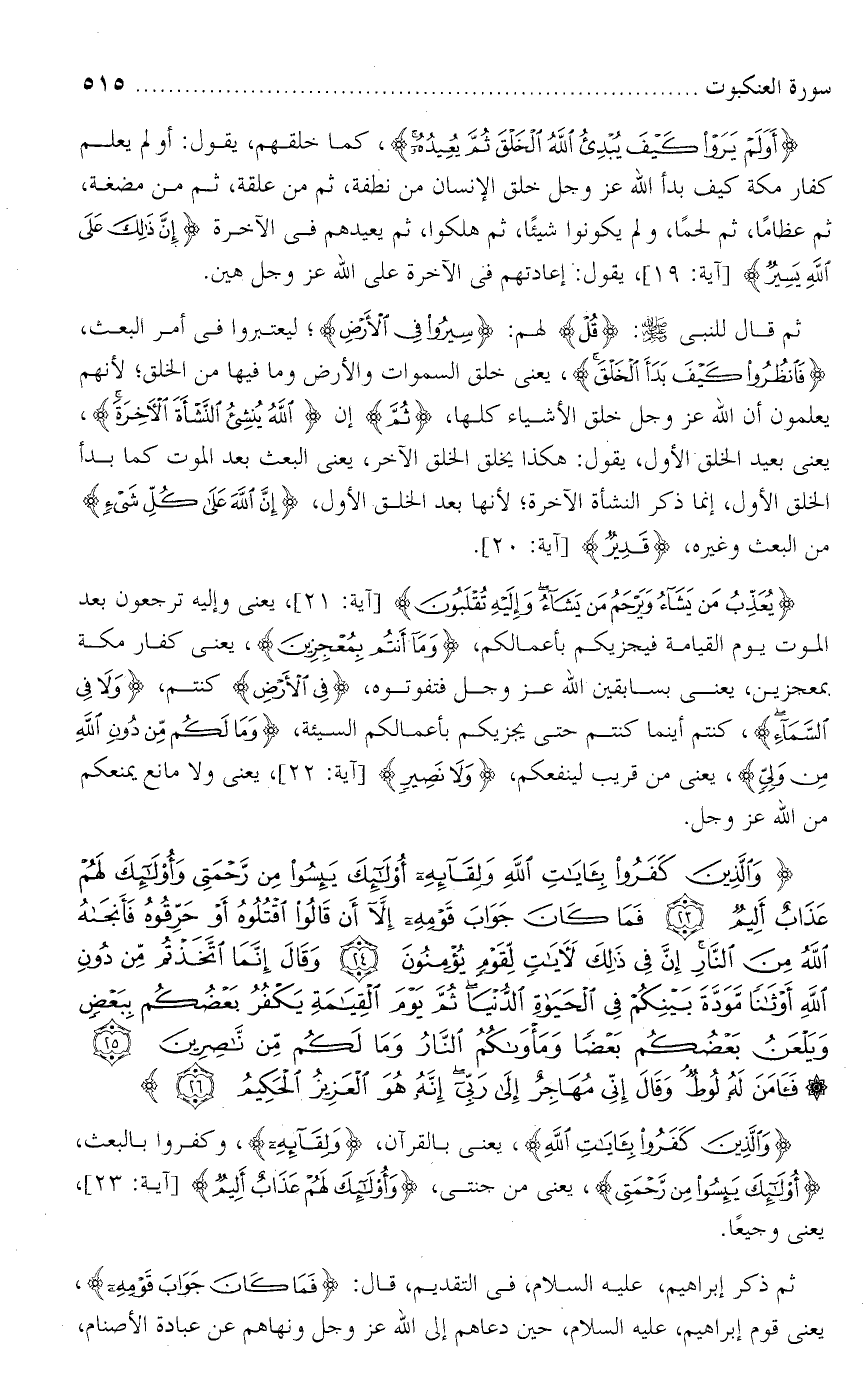 سورة العنكبوت ..................................................................... ٥١٥
﴿أَوَلَمْ يَرَوْا۟ كَيْفَ يُبْدِئُ ٱللَّهُ ٱلْخَلْقَ ثُمَّ يُعِيدُهُۥٓ﴾، كما خلقهم، يقول: أو لم يعلم
كفار مكة كيف بدأ الله عز وجل خلق الإنسان من نطفة، ثم من علقة، ثم من مضغة،
ثم عظامًا، ثم لحمًا، ولم يكونوا شيئًا، ثم هلكوا، ثم يعيدهم فى الآخرة ﴿إِنَّ ذَٰلِكَ عَلَى
ٱللَّهِ يَسِيرٌ﴾ [آية: ١٩]، يقول: إعادتهم فى الآخرة على الله عز وجل هين.
ثم قال للنبى ﷺ: ﴿قُلْ﴾ لهم: ﴿سِيرُوا۟ فِى ٱلْأَرْضِ﴾؛ ليعتبروا فى أمر البعث،
﴿فَٱنظُرُوا۟ كَيْفَ بَدَأَ ٱلْخَلْقَ ۚ﴾، يعنى خلق السموات والأرض وما فيها من الخلق؛ لأنهم
يعلمون أن الله عز وجل خلق الأشياء كلها، ﴿ثُمَّ﴾ إن ﴿ٱللَّهُ يُنشِئُ ٱلنَّشْأَةَ ٱلْـَٔاخِرَةَ ۚ﴾،
يعنى بعيد الخلق الأول، يقول: هكذا يخلق الخلق الآخر، يعنى البعث بعد الموت كما بدأ
الخلق الأول، إنما ذكر النشأة الآخرة؛ لأنها بعد الخلق الأول، ﴿إِنَّ ٱللَّهَ عَلَىٰ كُلِّ شَىْءٍ﴾
من البعث وغيره، ﴿قَدِيرٌ﴾ [آية: ٢٠].
﴿يُعَذِّبُ مَن يَشَآءُ وَيَرْحَمُ مَن يَشَآءُ ۖ وَإِلَيْهِ تُقْلَبُونَ﴾ [آية: ٢١]، يعنى وإليه ترجعون بعد
الموت يوم القيامة فيجزيكم بأعمالكم، ﴿وَمَآ أَنتُم بِمُعْجِزِينَ﴾، يعنى كفار مكة
بمعجزين، يعنى بسابقين الله عز وجل فتفوتوه، ﴿فِى ٱلْأَرْضِ﴾ كنتم، ﴿وَلَا فِى
ٱلسَّمَآءِ ۖ﴾، كنتم أينما كنتم حتى يجزيكم بأعمالكم السيئة، ﴿وَمَا لَكُم مِّن دُونِ ٱللَّهِ
مِن وَلِىٍّ﴾، يعنى من قريب لينفعكم، ﴿وَلَا نَصِيرٍ﴾ [آية: ٢٢]، يعنى ولا مانع يمنعكم
من الله عز وجل.
﴿وَٱلَّذِينَ كَفَرُوا۟ بِـَٔايَـٰتِ ٱللَّهِ وَلِقَآئِهِۦٓ أُو۟لَـٰٓئِكَ يَئِسُوا۟ مِن رَّحْمَتِى وَأُو۟لَـٰٓئِكَ لَهُمْ
عَذَابٌ أَلِيمٌ ٢٣ فَمَا كَانَ جَوَابَ قَوْمِهِۦٓ إِلَّآ أَن قَالُوا۟ ٱقْتُلُوهُ أَوْ حَرِّقُوهُ فَأَنجَىٰهُ
ٱللَّهُ مِنَ ٱلنَّارِ ۚ إِنَّ فِى ذَٰلِكَ لَـَٔايَـٰتٍ لِّقَوْمٍ يُؤْمِنُونَ ٢٤ وَقَالَ إِنَّمَا ٱتَّخَذْتُم مِّن دُونِ
ٱللَّهِ أَوْثَـٰنًا مَّوَدَّةَ بَيْنِكُمْ فِى ٱلْحَيَوٰةِ ٱلدُّنْيَا ۖ ثُمَّ يَوْمَ ٱلْقِيَـٰمَةِ يَكْفُرُ بَعْضُكُم بِبَعْضٍ
وَيَلْعَنُ بَعْضُكُم بَعْضًا وَمَأْوَىٰكُمُ ٱلنَّارُ وَمَا لَكُم مِّن نَّـٰصِرِينَ ٢٥
۞ فَـَٔامَنَ لَهُۥ لُوطٌ ۘ وَقَالَ إِنِّى مُهَاجِرٌ إِلَىٰ رَبِّىٓ ۖ إِنَّهُۥ هُوَ ٱلْعَزِيزُ ٱلْحَكِيمُ ٢٦﴾
﴿وَٱلَّذِينَ كَفَرُوا۟ بِـَٔايَـٰتِ ٱللَّهِ﴾، يعنى بالقرآن، ﴿وَلِقَآئِهِۦٓ﴾، وكفروا بالبعث،
﴿أُو۟لَـٰٓئِكَ يَئِسُوا۟ مِن رَّحْمَتِى﴾، يعنى من جنتى، ﴿وَأُو۟لَـٰٓئِكَ لَهُمْ عَذَابٌ أَلِيمٌ﴾ [آية: ٢٣]،
يعنى وجيعًا.
ثم ذكر إبراهيم، عليه السلام، فى التقديم، قال: ﴿فَمَا كَانَ جَوَابَ قَوْمِهِۦٓ﴾،
يعنى قوم إبراهيم، عليه السلام، حين دعاهم إلى الله عز وجل ونهاهم عن عبادة الأصنام،